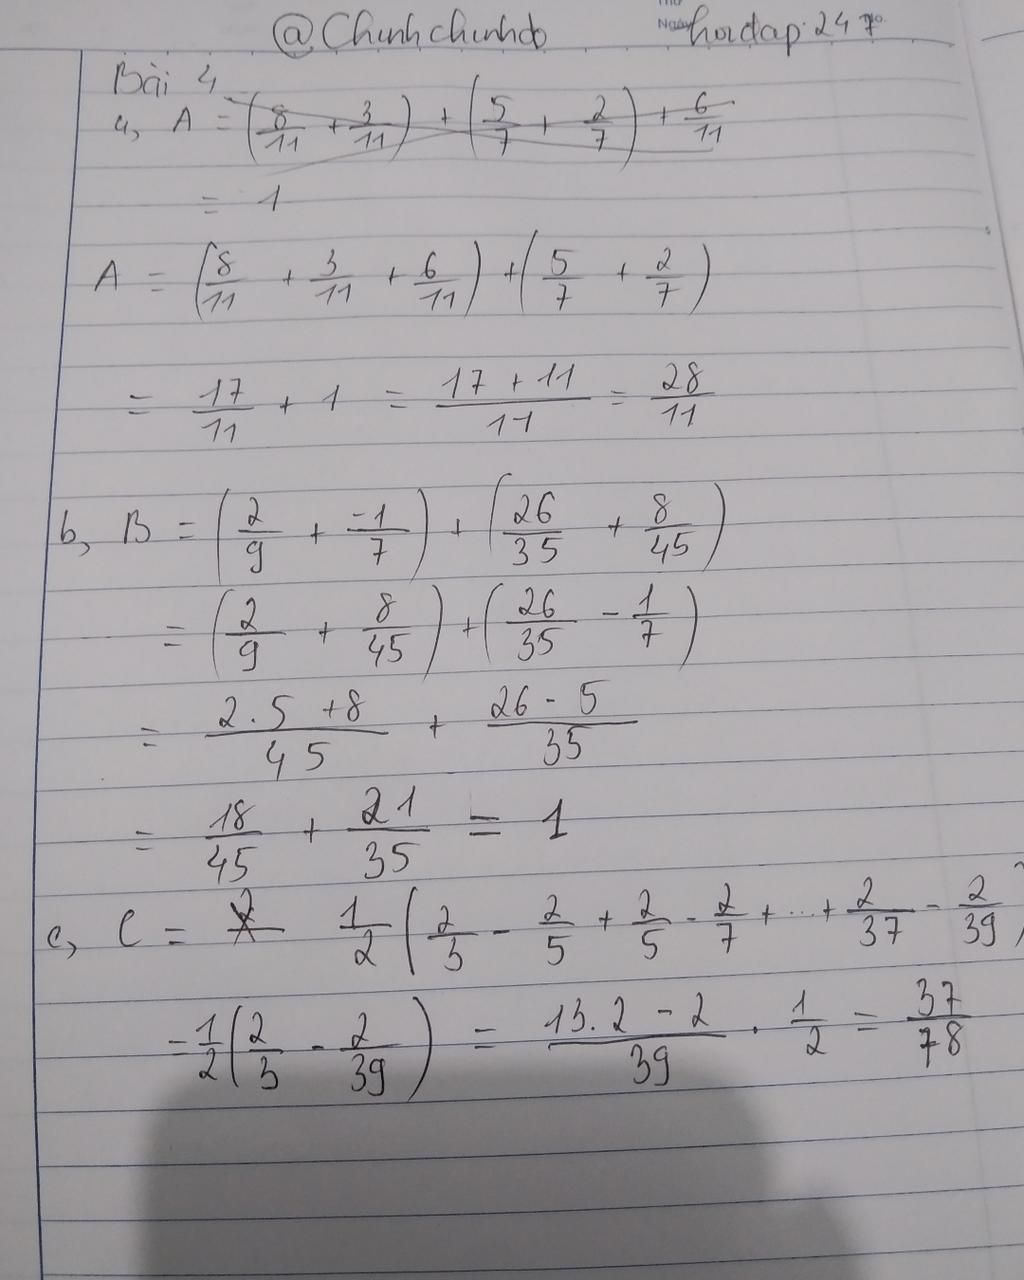 @Chinhchinhdo hoidap247
Ngày No.
Bài 4
a, A = (8/11 + 3/11) + (5/7 + 2/7) + 6/11
= 1
A = (8/11 + 3/11 + 6/11) + (5/7 + 2/7)
= 17/11 + 1 = (17 + 11)/11 = 28/11
b, B = (2/9 + -1/7) + (26/35 + 8/45)
= (2/9 + 8/45) + (26/35 - 1/7)
= (2.5 + 8)/45 + (26 - 5)/35
= 18/45 + 21/35 = 1
c, C = 1/2 (2/3 - 2/5 + 2/5 - 2/7 + ... + 2/37 - 2/39)
= 1/2 (2/3 - 2/39) = (13.2 - 2)/39 . 1/2 = 37/78